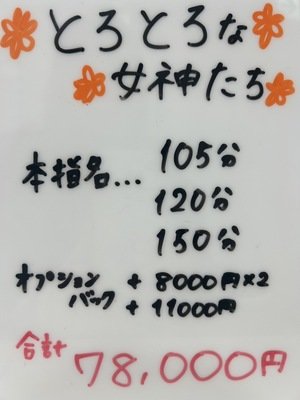 とろとろな
女神たち
本指名... 105分
120分
150分
オプション + 8000円×2
バック + 11000円
合計 78,000円